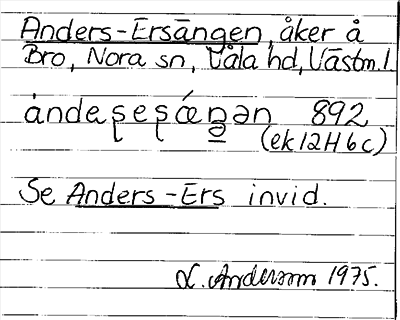 Anders-Ersängen, åker å
Bro, Nora sn, Våla hd, Västm.l.
ándaʂeʂǽŋ̱ən 892
(ek 12H6c)
Se Anders-Ers invid.
L. Andersson 1975.